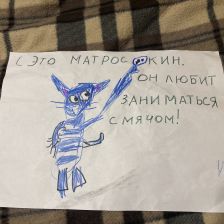 ЭТО МАТРОСКИН.
ОН ЛЮБИТ
ЗАНИМАТЬСЯ
С МЯЧОМ!